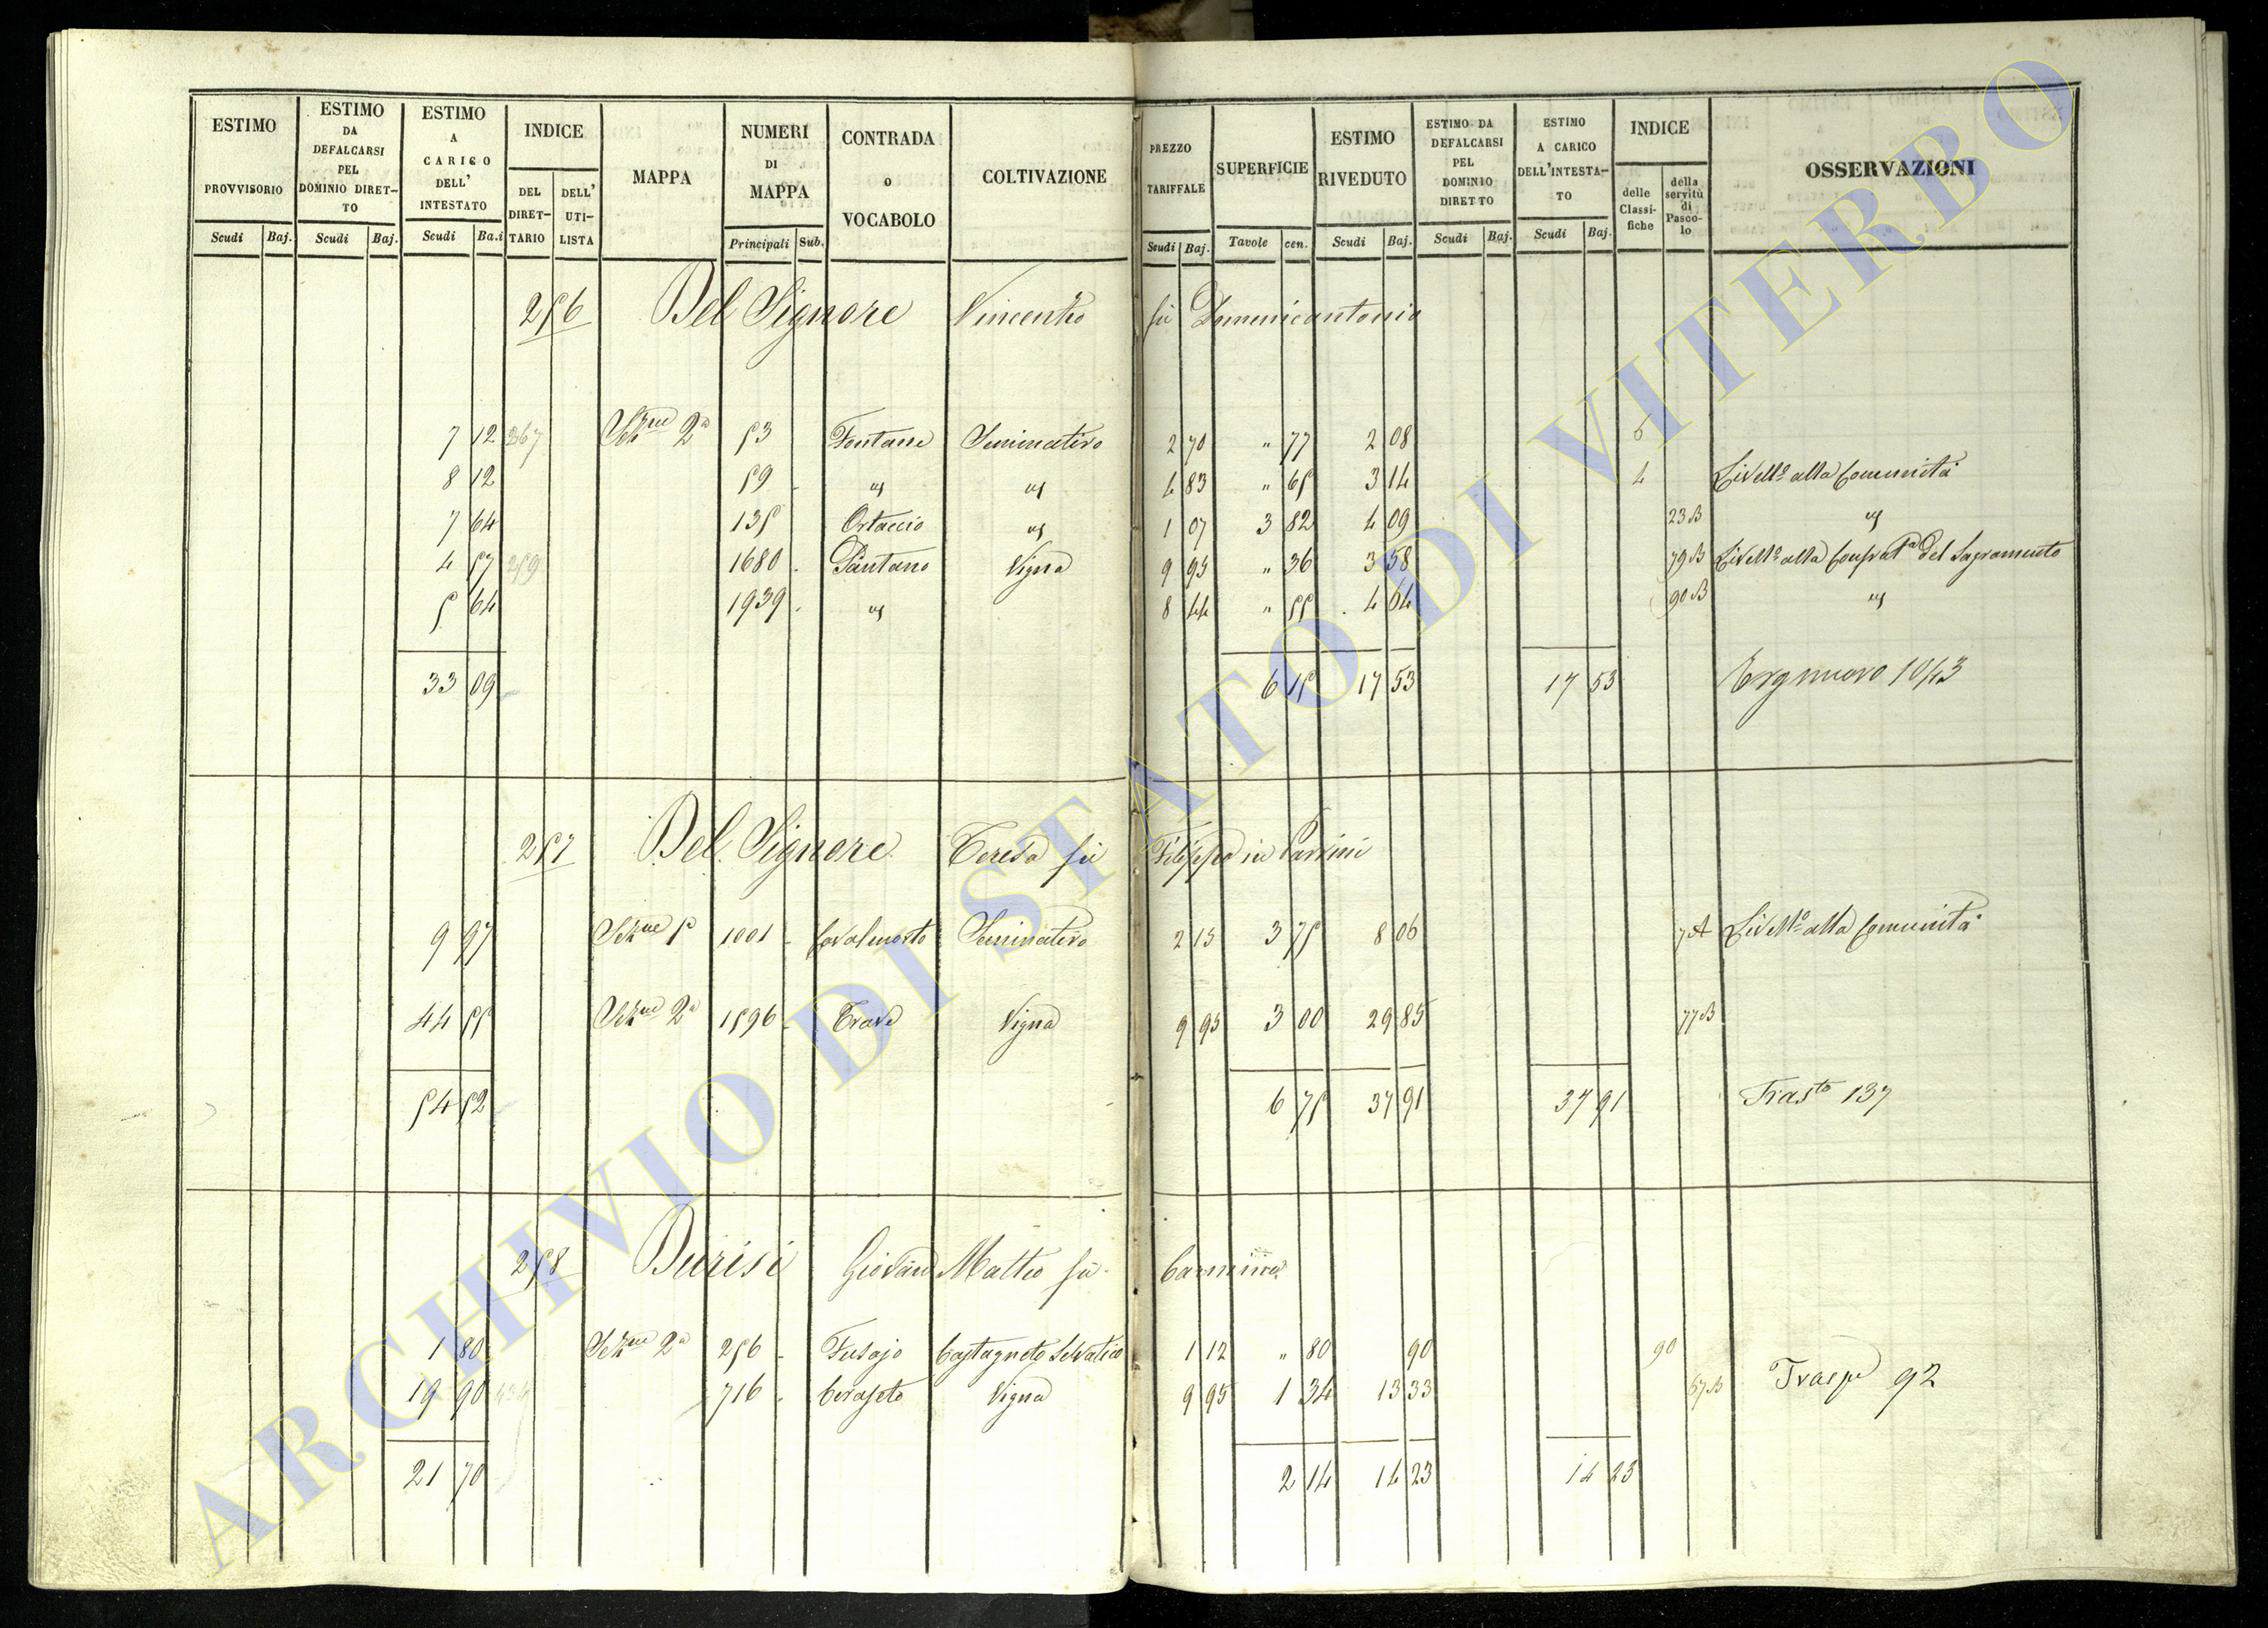 ESTIMO PROVVISORIO Scudi Baj.
ESTIMO DA DEFALCARSI PEL DOMINIO DIRET-TO Scudi Baj.
ESTIMO A CARICO DELL' INTESTATO Scudi Ba.i
INDICE DEL DIRET-TARIO DELL' UTI-LISTA
MAPPA
NUMERI DI MAPPA Principali Sub.
CONTRADA o VOCABOLO
COLTIVAZIONE
PREZZO TARIFFALE Scudi Baj.
SUPERFICIE Tavole cen.
ESTIMO RIVEDUTO Scudi Baj.
ESTIMO DA DEFALCARSI PEL DOMINIO DIRETTO Scudi Baj.
ESTIMO A CARICO DELL'INTESTA-TO Scudi Baj.
INDICE delle Classi-fiche della servitù di Pasco-lo
OSSERVAZIONI
256 Del Signore Vincenzo fù Domenicantonio
7 12 267 Sezne 2a 53 Fontane Seminativo 2 70 " 77 2 08 6
8 12 59 - " " 4 83 " 65 3 14 4 Livello alla Comunità
7 64 135 Ortaccio " 1 07 3 82 4 09 23 B "
4 57 259 1680 - Pantano Vigna 9 95 " 36 3 58 79 B Livello alla Confrata del Sagramento
5 64 1939 - " 8 44 " 55 4 64 90 B "
33 09 6 15 17 53 17 53
257 Del Signore Teresa fù Filippo in
9 97 Sezne 1a 1001 - Cavalmorto Seminativo 2 15 3 75 8 06 7 A Livello alla Comunità
44 55 Sezne 2a 1596 - Trave Vigna 9 95 3 00 29 85 77 B
54 52 6 75 37 91 37 91 Trasto 137
258 Durisi Giovan Matteo fù
1 80 Sezne 2a 256 - Fusajo Castagneto Selvatico 1 12 " 80 90 90
19 90 434 716 - Ceraseto Vigna 9 95 1 34 13 33 67 B Trasp 92
21 70 2 14 14 23 14 23
ARCHIVIO DI STATO DI VITERBO